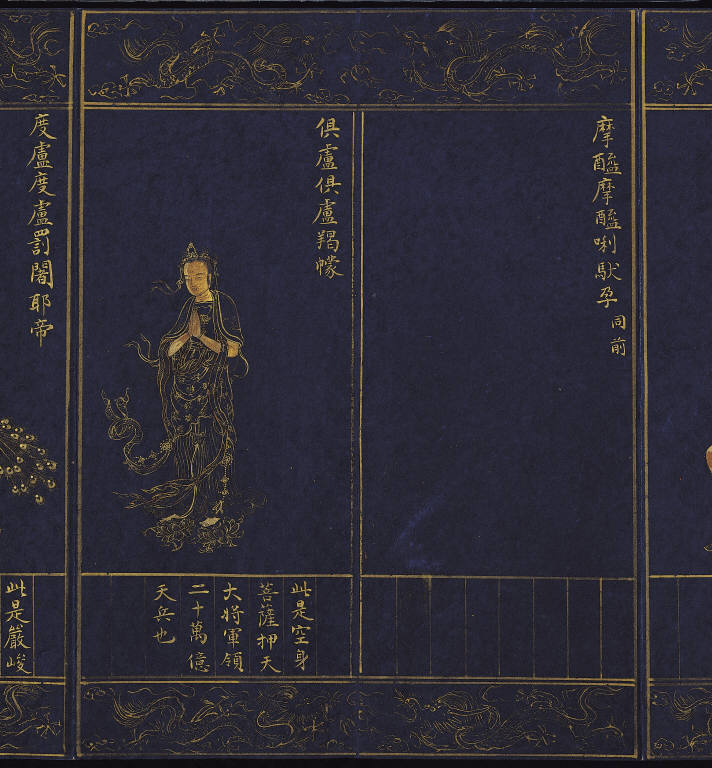 摩醯摩醯唎馱孕 同前
俱盧俱盧羯懞
此是空身
菩薩押天
大將軍領
二十萬億
天兵也
度盧度盧罰闍耶帝
此是嚴峻